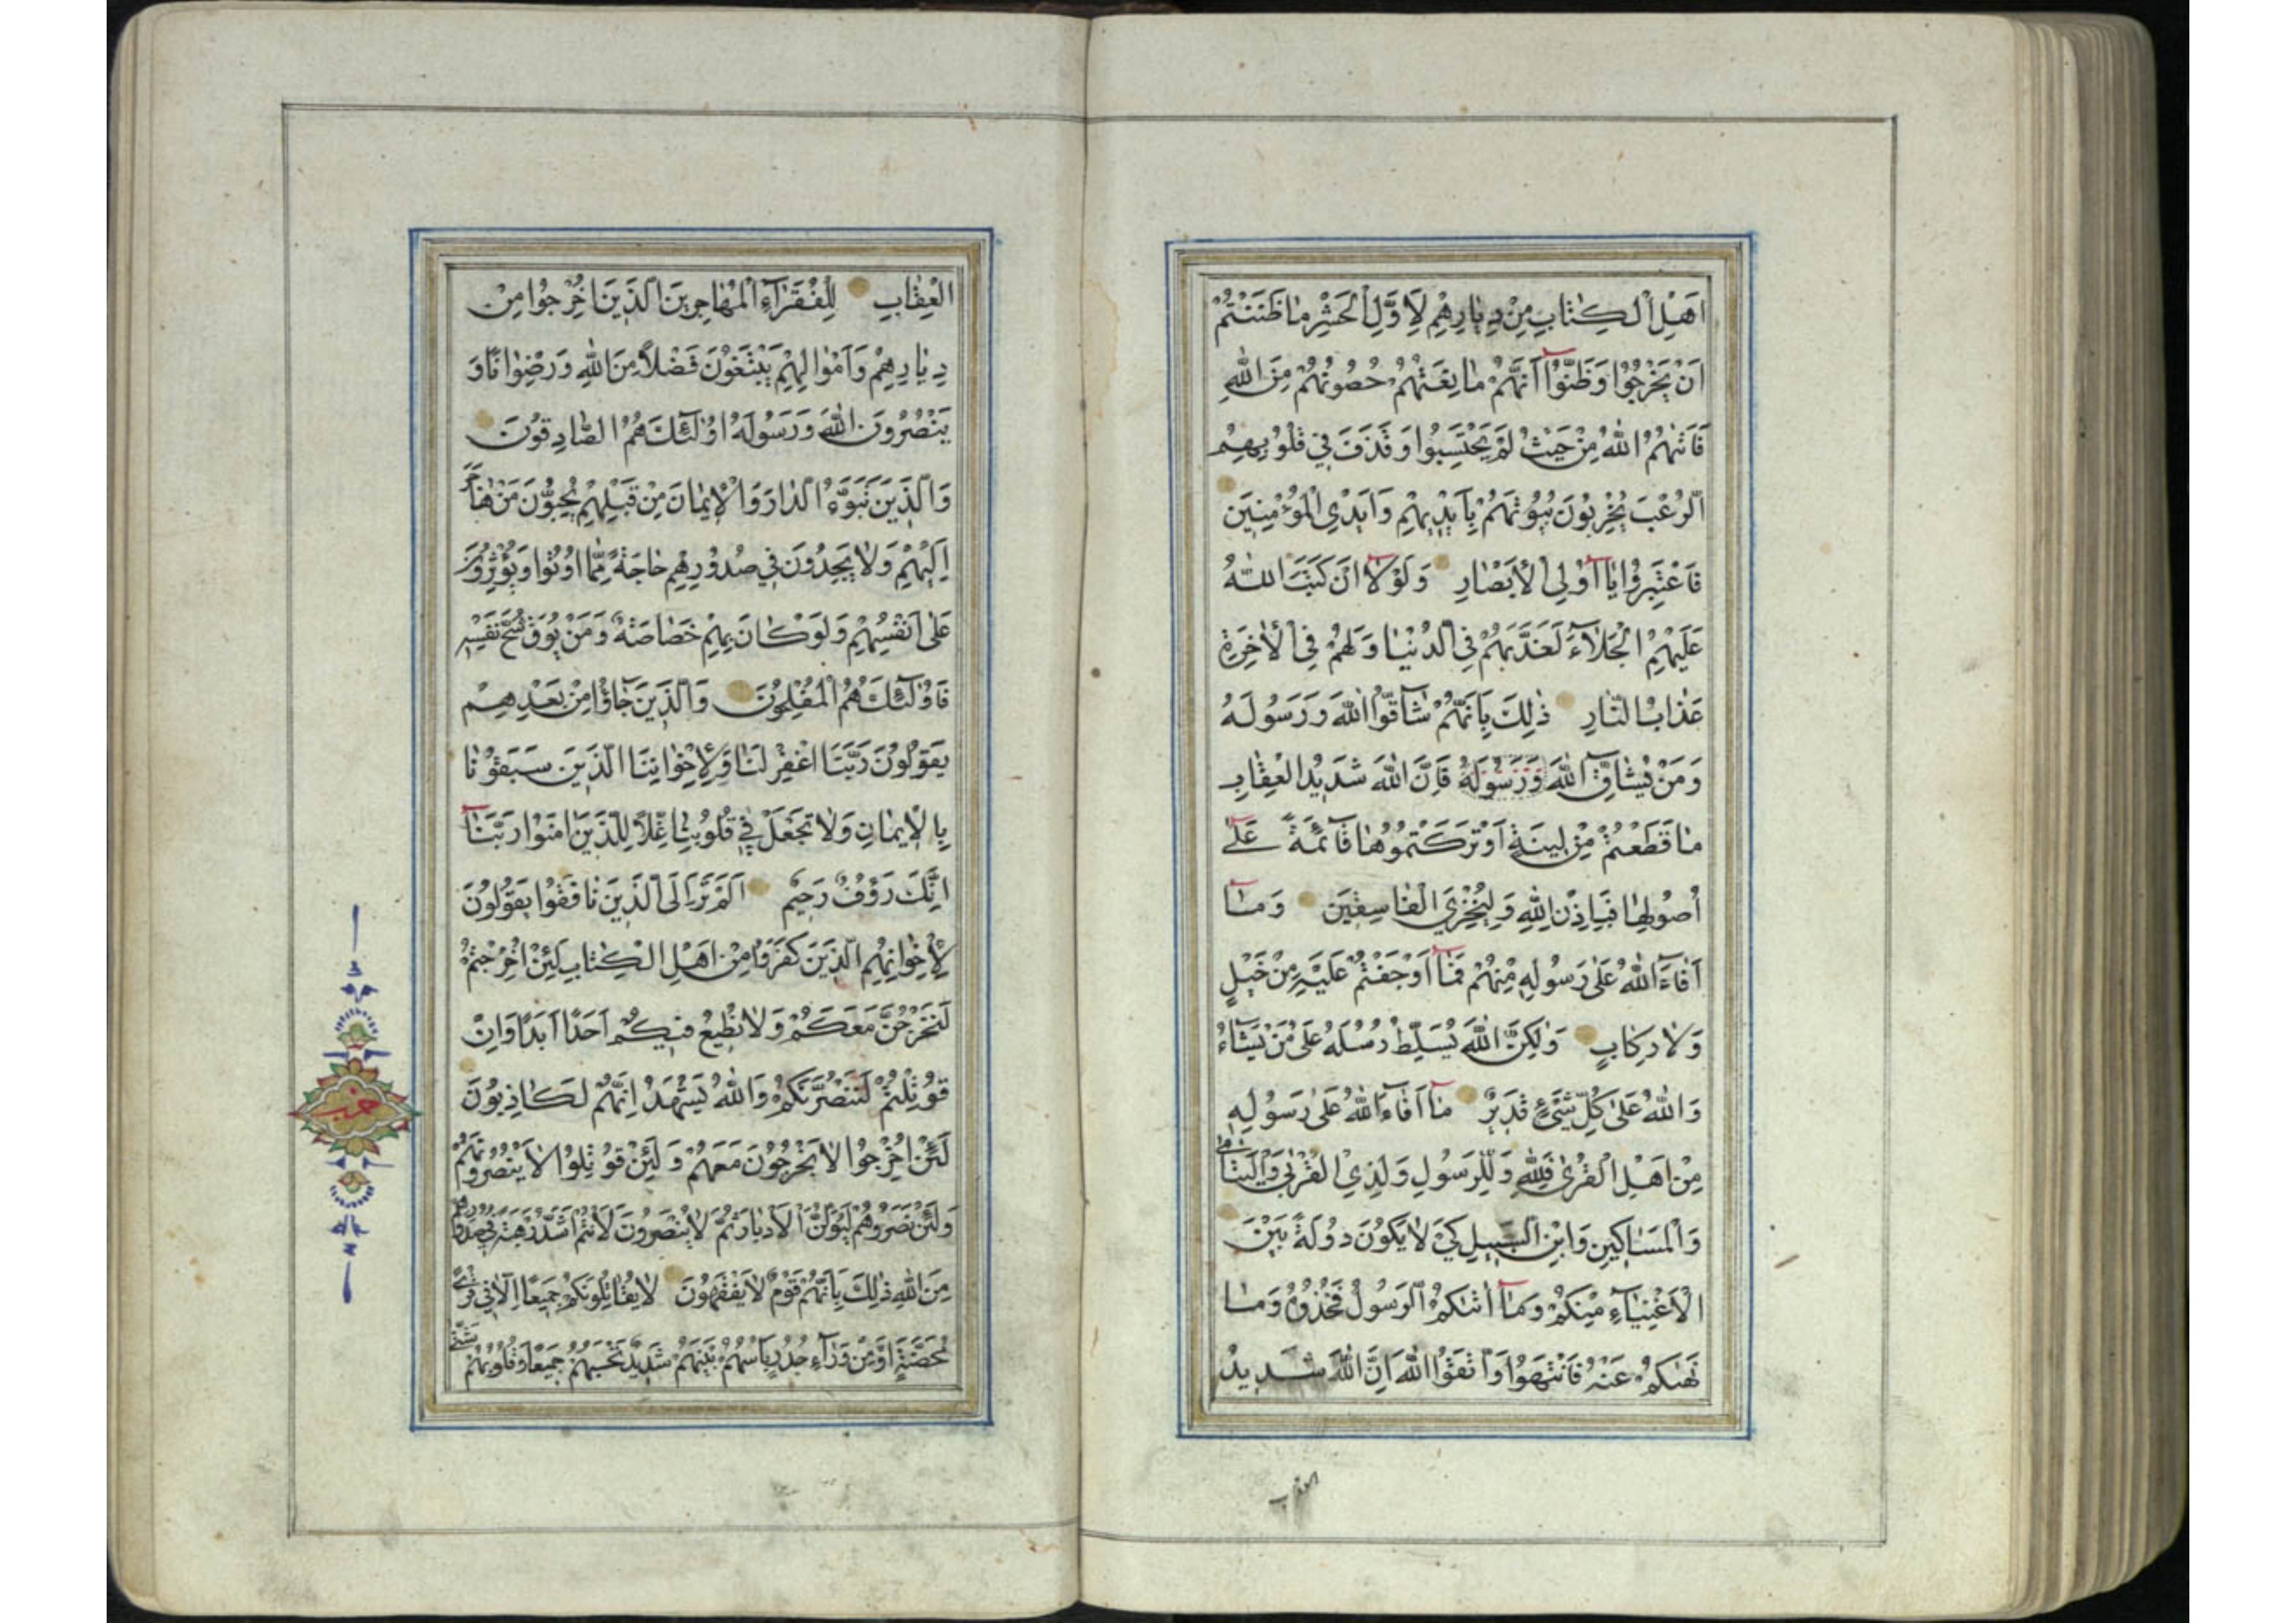 اَهْلِ الْكِتٰابِ مِنْ دِيٰارِهِمْ لِاَوَّلِ الْحَشْرِ مٰا ظَنَنْتُمْ
اَنْ يَخْرُجُوا وَظَنُّوآ اَنَّهُمْ مٰانِعَتُهُمْ حُصُونُهُمْ مِنَ اللّٰهِ
فَاَتٰهُمُ اللّٰهُ مِنْ حَيْثُ لَمْ يَحْتَسِبُوا وَقَذَفَ فِي قُلُوبِهِمُ
الرُّعْبَ يُخْرِبُونَ بُيُوتَهُمْ بِاَيْدِيهِمْ وَاَيْدِي الْمُؤْمِنِينَ
فَاعْتَبِرُوا يٰآ اُولِي الْاَبْصٰارِ وَلَوْلآ اَنْ كَتَبَ اللّٰهُ
عَلَيْهِمُ الْجَلٰآءَ لَعَذَّبَهُمْ فِي الدُّنْيٰا وَلَهُمْ فِي الْاٰخِرَةِ
عَذٰابُ النّٰارِ ذٰلِكَ بِاَنَّهُمْ شٰآقُّوا اللّٰهَ وَرَسُولَهُ
وَمَنْ يُشٰآقِّ اللّٰهَ وَرَسُولَهُ فَاِنَّ اللّٰهَ شَدِيدُ الْعِقٰابِ
مٰا قَطَعْتُمْ مِنْ لِينَةٍ اَوْ تَرَكْتُمُوهٰا قٰآئِمَةً عَلٰٓى
اُصُولِهٰا فَبِاِذْنِ اللّٰهِ وَلِيُخْزِيَ الْفٰاسِقِينَ وَمٰآ
اَفٰآءَ اللّٰهُ عَلٰى رَسُولِهِ مِنْهُمْ فَمٰآ اَوْجَفْتُمْ عَلَيْهِ مِنْ خَيْلٍ
وَلٰا رِكٰابٍ وَلٰكِنَّ اللّٰهَ يُسَلِّطُ رُسُلَهُ عَلٰى مَنْ يَشٰآءُ
وَاللّٰهُ عَلٰى كُلِّ شَيْئٍ قَدِيرٌ مٰآ اَفٰآءَ اللّٰهُ عَلٰى رَسُولِهِ
مِنْ اَهْلِ الْقُرٰى فَلِلّٰهِ وَلِلرَّسُولِ وَلِذِي الْقُرْبٰى وَالْيَتٰامٰى
وَالْمَسٰاكِينِ وَابْنِ السَّبِيلِ كَيْ لٰا يَكُونَ دُولَةً بَيْنَ
الْاَغْنِيٰآءِ مِنْكُمْ وَمٰآ اٰتٰكُمُ الرَّسُولُ فَخُذُوهُ وَمٰا
نَهٰكُمْ عَنْهُ فَانْتَهُوا وَاتَّقُوا اللّٰهَ اِنَّ اللّٰهَ شَدِيدُ
العقاب
الْعِقٰابِ لِلْفُقَرٰآءِ الْمُهٰاجِرِينَ الَّذِينَ اُخْرِجُوا مِنْ
دِيٰارِهِمْ وَاَمْوٰالِهِمْ يَبْتَغُونَ فَضْلاً مِنَ اللّٰهِ وَرِضْوٰانًا وَ
يَنْصُرُونَ اللّٰهَ وَرَسُولَهُ اُولٰٓئِكَ هُمُ الصّٰادِقُونَ
وَالَّذِينَ تَبَوَّءُ الدّٰارَ وَالْاِيمٰانَ مِنْ قَبْلِهِمْ يُحِبُّونَ مَنْ هٰاجَرَ
اِلَيْهِمْ وَلٰا يَجِدُونَ فِي صُدُورِهِمْ حٰاجَةً مِمّٰا اُوتُوا وَيُؤْثِرُونَ
عَلٰى اَنْفُسِهِمْ وَلَوْ كٰانَ بِهِمْ خَصٰاصَةٌ وَمَنْ يُوقَ شُحَّ نَفْسِهِ
فَاُولٰٓئِكَ هُمُ الْمُفْلِحُونَ وَالَّذِينَ جٰآؤُا مِنْ بَعْدِهِمْ
يَقُولُونَ رَبَّنَا اغْفِرْ لَنٰا وَلِاِخْوٰانِنَا الَّذِينَ سَبَقُونٰا
بِالْاِيمٰانِ وَلٰا تَجْعَلْ فِي قُلُوبِنٰا غِلاًّ لِلَّذِينَ اٰمَنُوا رَبَّنٰآ
اِنَّكَ رَؤُفٌ رَحِيمٌ اَلَمْ تَرَ اِلَى الَّذِينَ نٰافَقُوا يَقُولُونَ
لِاِخْوٰانِهِمُ الَّذِينَ كَفَرُوا مِنْ اَهْلِ الْكِتٰابِ لَئِنْ اُخْرِجْتُمْ
لَنَخْرُجَنَّ مَعَكُمْ وَلٰا نُطِيعُ فِيكُمْ اَحَدًا اَبَدًا وَاِنْ
قُوتِلْتُمْ لَنَنْصُرَنَّكُمْ وَاللّٰهُ يَشْهَدُ اِنَّهُمْ لَكٰاذِبُونَ
لَئِنْ اُخْرِجُوا لٰا يَخْرُجُونَ مَعَهُمْ وَلَئِنْ قُوتِلُوا لٰا يَنْصُرُونَهُمْ
وَلَئِنْ نَصَرُوهُمْ لَيُوَلُّنَّ الْاَدْبٰارَ ثُمَّ لٰا يُنْصَرُونَ لَاَنْتُمْ اَشَدُّ رَهْبَةً فِي صُدُورِهِمْ
مِنَ اللّٰهِ ذٰلِكَ بِاَنَّهُمْ قَوْمٌ لٰا يَفْقَهُونَ لٰا يُقٰاتِلُونَكُمْ جَمِيعًا اِلّٰا فِي قُرًى
مُحَصَّنَةٍ اَوْ مِنْ وَرٰآءِ جُدُرٍ بَاْسُهُمْ بَيْنَهُمْ شَدِيدٌ تَحْسَبُهُمْ جَمِيعًا وَقُلُوبُهُمْ شَتّٰى
حزب